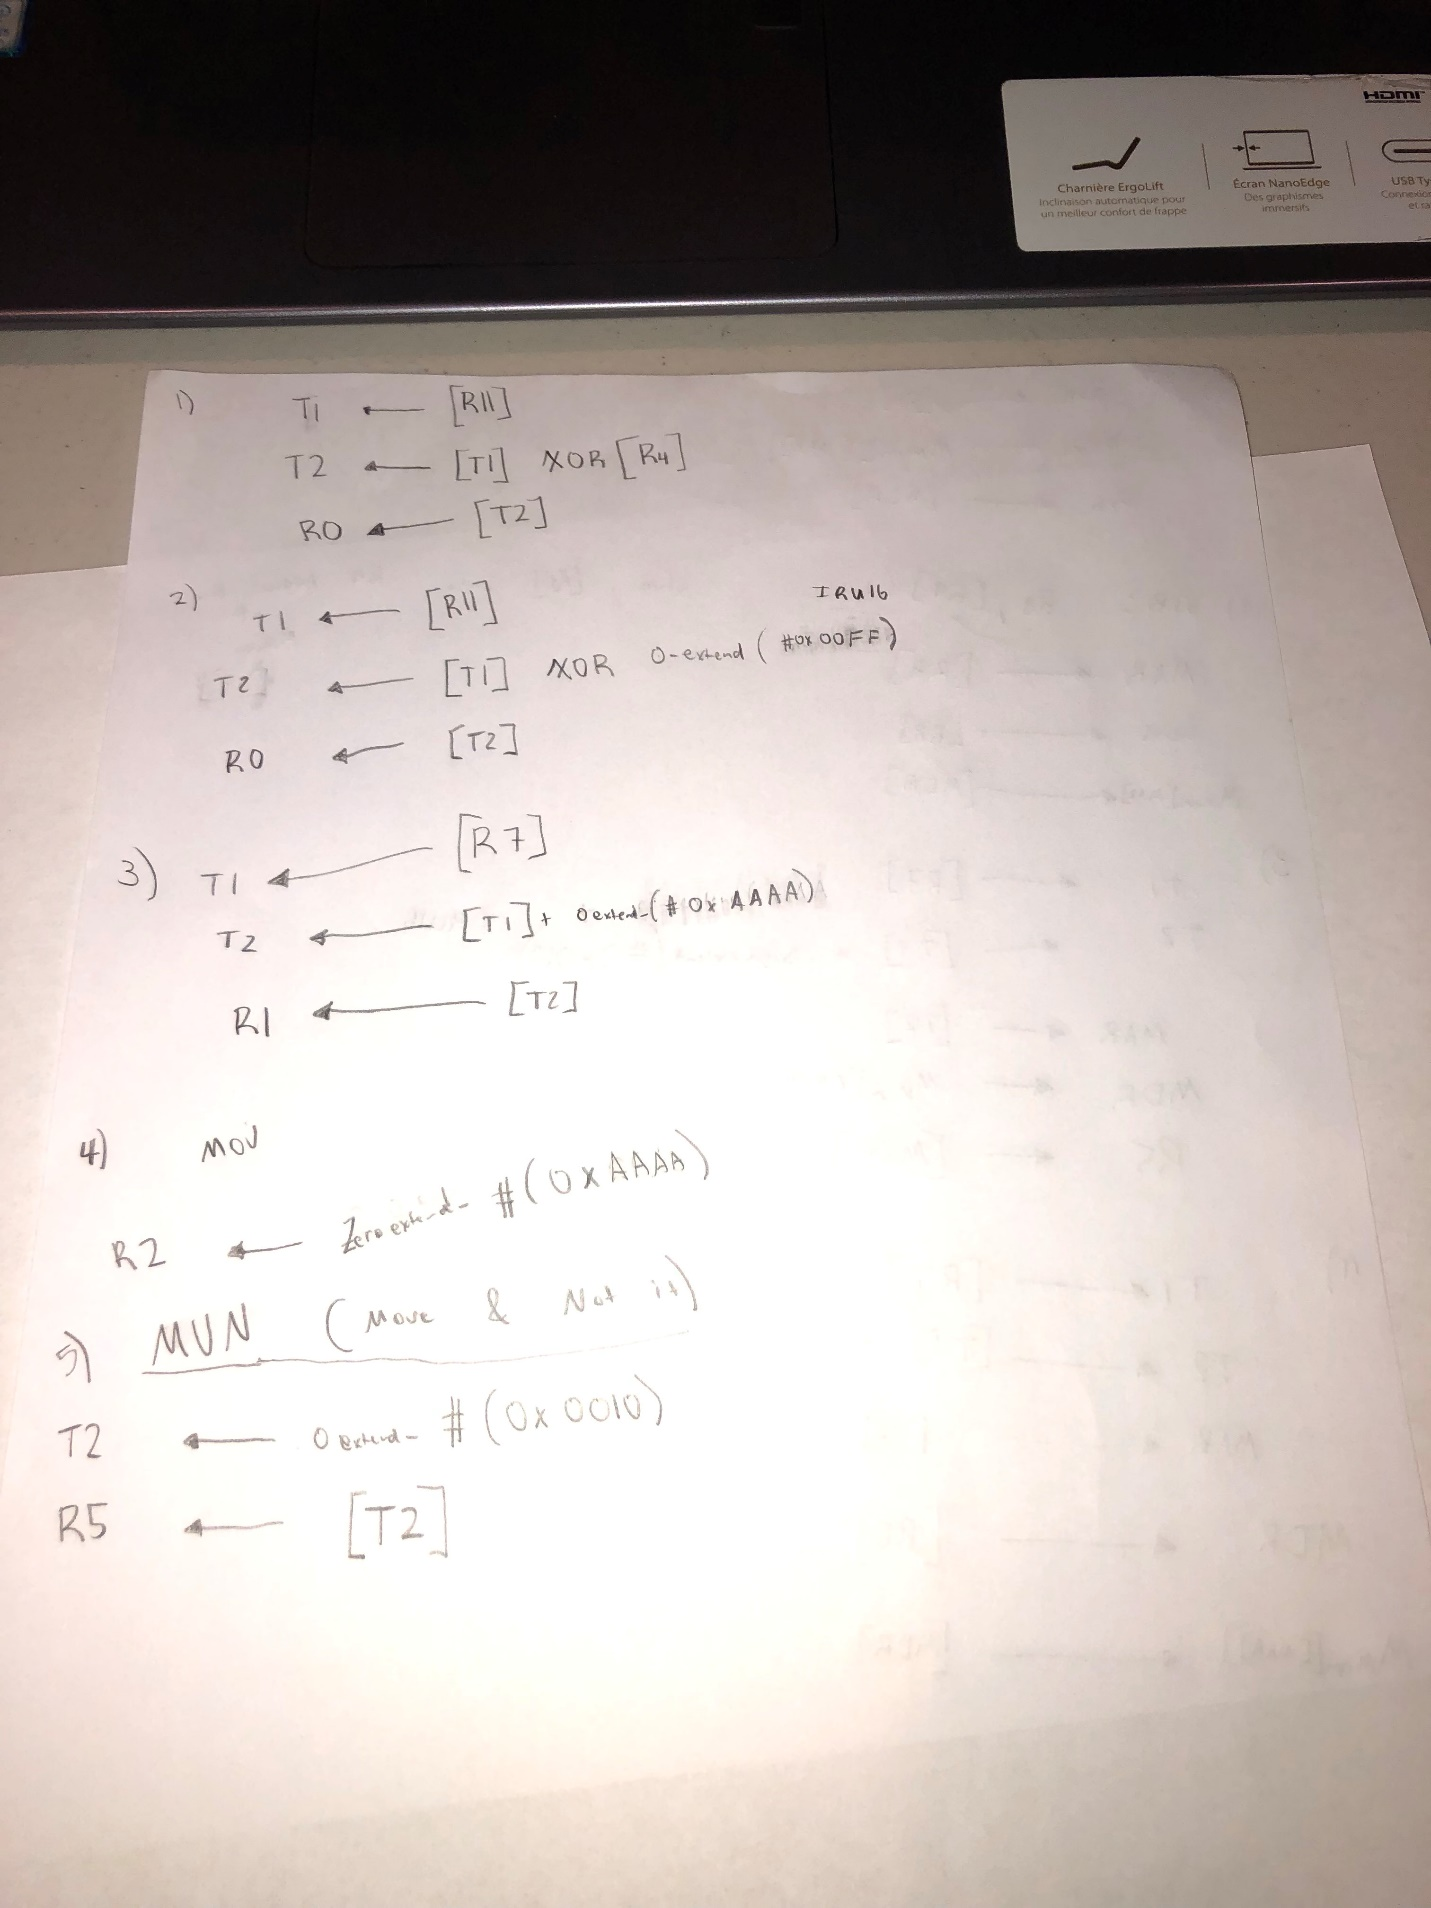 HDMI
Charnière ErgoLift
Inclinaison automatique pour
un meilleur confort de frappe
Écran NanoEdge
Des graphismes
immersifs
USB Ty
Connexion
et ra
1) T1 ← [R11]
T2 ← [T1] XOR [R4]
R0 ← [T2]
2) T1 ← [R11]
IRU16
T2 ← [T1] XOR 0-extend (#0x00FF)
R0 ← [T2]
3) T1 ← [R7]
T2 ← [T1] + 0extend-(#0xAAAA)
R1 ← [T2]
4) MOV
R2 ← Zero extend- #(0xAAAA)
5) MVN (Move & Not it)
T2 ← 0 extend- #(0x0010)
R5 ← [T2]